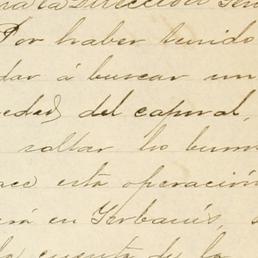 ra la Dirección Gen
Por haber tenido
dar á buscar un
edad del caporal,
saltar los bum
ace esta operación
en Yerbanís,
la cuenta de la